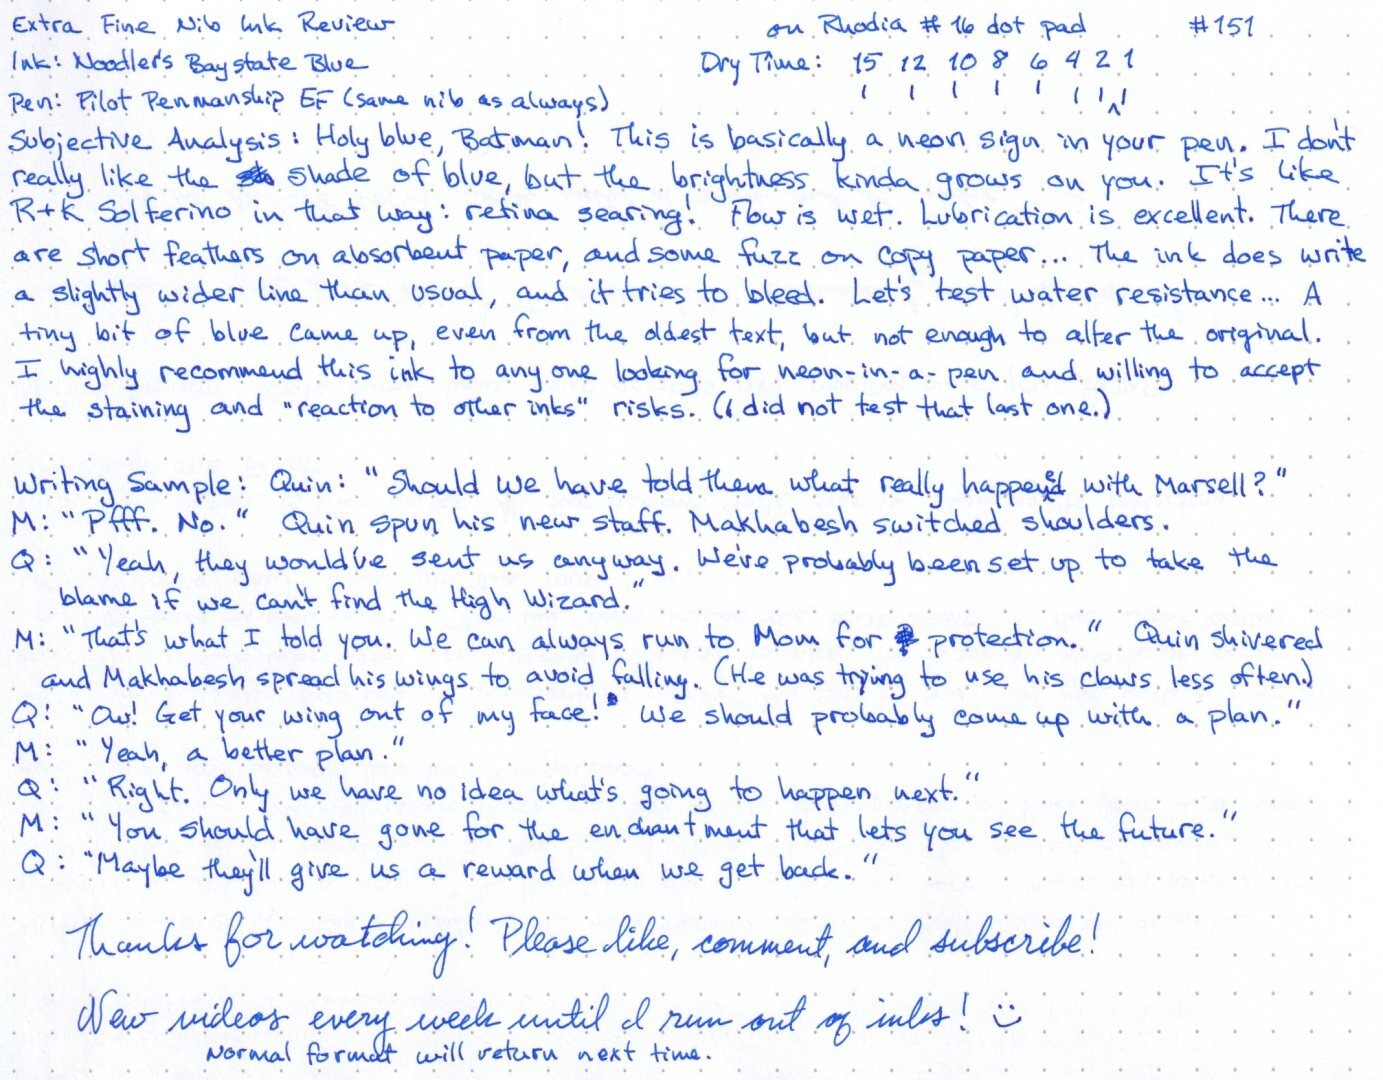 Extra Fine Nib Ink Review on Rhodia # 16 dot pad #151
Ink: Noodler's Baystate Blue Dry Time: 15 12 10 8 6 4 2 1
Pen: Pilot Penmanship EF (same nib as always)
Subjective Analysis: Holy blue, Batman! This is basically a neon sign in your pen. I don't
really like the shade of blue, but the brightness kinda grows on you. It's like
R+K Solferino in that way: retina searing! Flow is wet. Lubrication is excellent. There
are short feathers on absorbent paper, and some fuzz on copy paper... The ink does write
a slightly wider line than usual, and it tries to bleed. Let's test water resistance... A
tiny bit of blue came up, even from the oldest text, but not enough to alter the original.
I highly recommend this ink to anyone looking for neon-in-a-pen and willing to accept
the staining and "reaction to other inks" risks. (I did not test that last one.)
Writing Sample: Quin: "Should we have told them what really happened with Marsell?"
M: "Pfff. No." Quin spun his new staff. Makhabesh switched shoulders.
Q: "Yeah, they would've sent us anyway. We've probably been set up to take the
blame if we can't find the High Wizard."
M: "That's what I told you. We can always run to Mom for protection." Quin shivered
and Makhabesh spread his wings to avoid falling. (He was trying to use his claws less often.)
Q: "Ow! Get your wing out of my face!" We should probably come up with a plan."
M: "Yeah, a better plan."
Q: "Right. Only we have no idea what's going to happen next."
M: "You should have gone for the enchantment that lets you see the future."
Q: "Maybe they'll give us a reward when we get back."
Thanks for watching! Please like, comment, and subscribe!
New videos every week until I run out of inks! :)
Normal format will return next time.